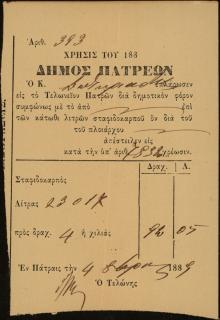 Ἀριθ. 393
ΧΡΗΣΙΣ ΤΟΥ 188
ΔΗΜΟΣ ΠΑΤΡΕΩΝ
Ὁ Κ. ἐπλήρωσεν
εἰς τὸ Τελωνεῖον Πατρῶν διὰ δημοτικὸν φόρον
συμφώνως μὲ τὸ ἀπὸ ἐπὶ
τῶν κάτωθι λιτρῶν σταφιδοκαρποῦ ὃν διὰ τοῦ
τοῦ πλοιάρχου
ἀπέστειλεν εἰς
κατὰ τὴν ὑπ' ἀριθ. 1832
Δραχ. Λ.
Σταφιδοκαρπὸς
Λίτρας 23018
πρὸς δραχ. 4 ἡ χιλιὰς 92 05
Ἐν Πάτραις τὴν 4 8βρίου 1889
Ὁ Τελώνης